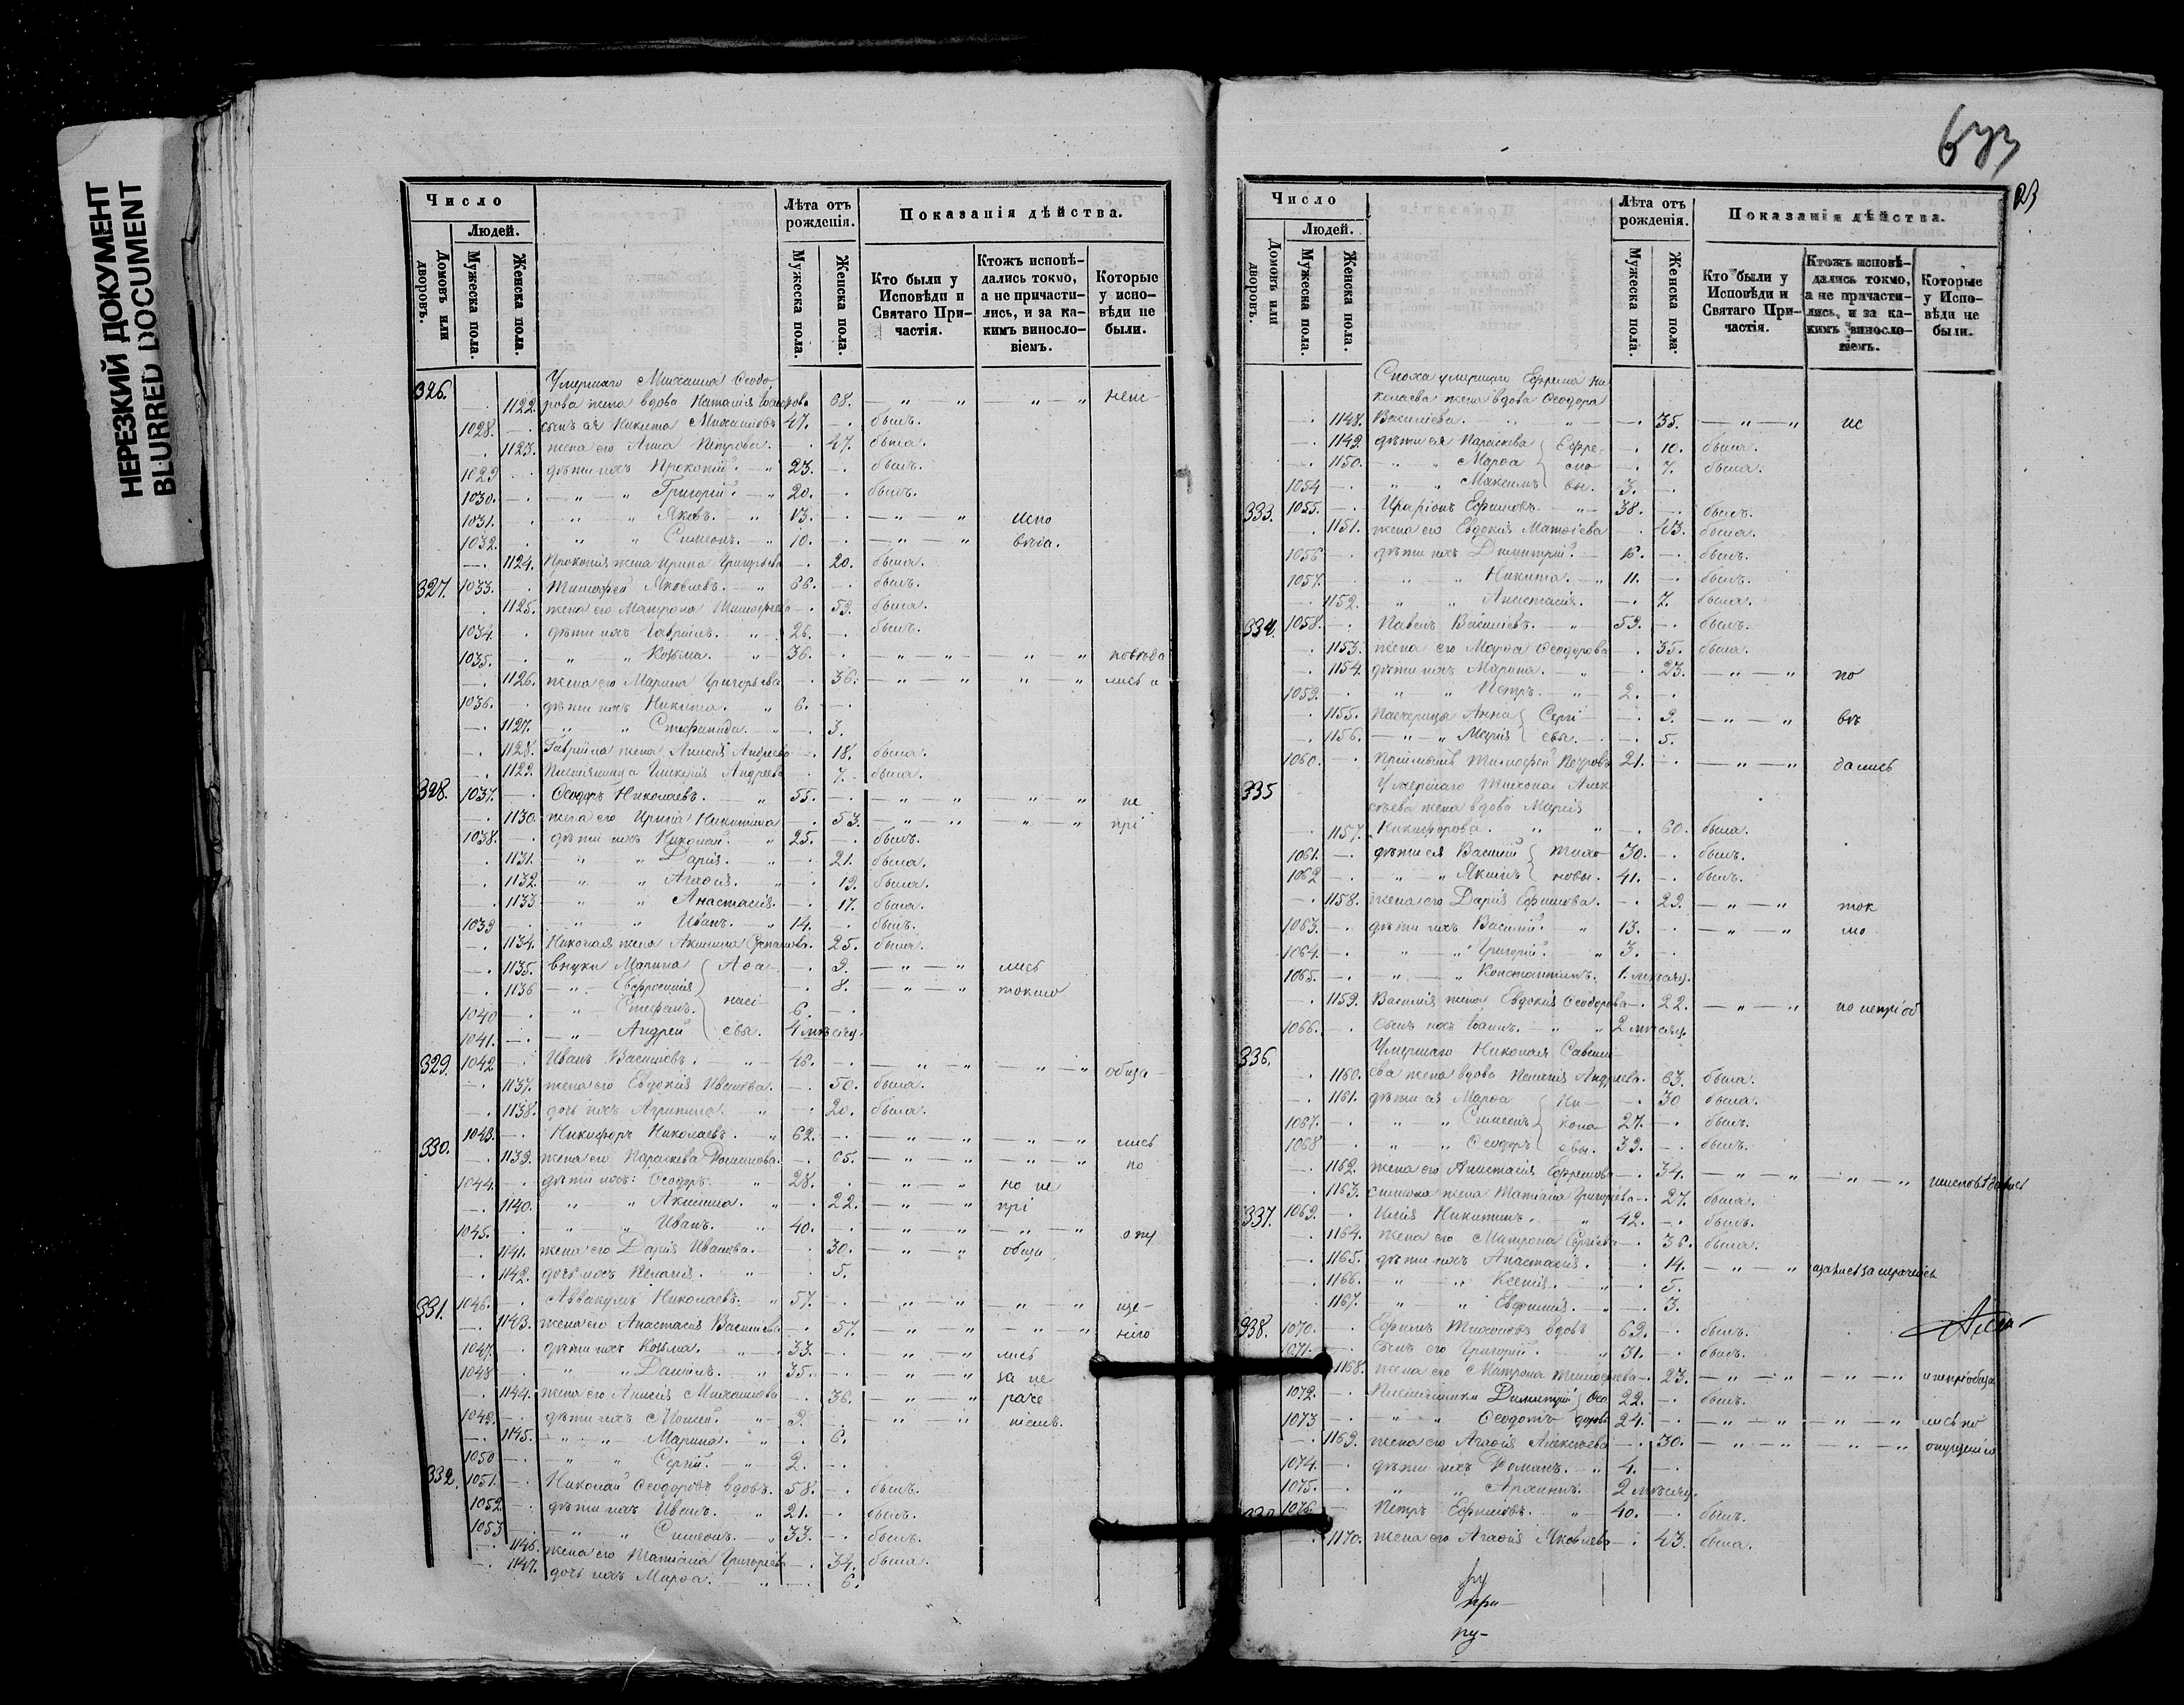 НЕРЕЗКИЙ ДОКУМЕНТ
BLURRED DOCUMENT
Число
Людей.
Домовъ или дворовъ.
Мужеска пола.
Женска пола.
Лѣта отъ рожденія.
Мужеска пола.
Женска пола.
Показанія дѣйства.
Кто были у Исповѣди и Святаго Причастія.
Ктожъ исповѣдались токмо, а не причастились, и за какимъ винословіемъ.
Которые у исповѣди не были.
326. Умершаго Михаила Ѳеодо-
1122. рова жена вдова Наталія 68. — „ — „ — „ — „ неис-
1028. сынъ ея Никита Михайловъ 47. былъ.
1123. жена его Анна Петрова. 47. была.
1029 дѣти ихъ Прокопій. „ 23. былъ.
1030. — „ — „ Григорій. „ 20. былъ.
1031. „ „ Яковъ. „ 13. — „ „ испо
1032. „ „ Симеонъ. „ 10. — „ — „ вѣда.
1124. Прокопія жена Ирина Григорьева 20. была.
327. 1033. Тимофей Яковлевъ. „ 66. былъ.
1125. жена его Матрона Тимофеева 59. была.
1034. дѣти ихъ Гавріилъ. „ 26. былъ.
1035. „ „ Козьма. „ 36. — „ — „ — „ — „ повѣда
1126. жена его Марина Григорьева 36. — „ — „ „ „ лись и
1036. дѣти ихъ Никита. „ 6.
1127. „ „ Стефанида. „ 3.
1128. Гавріила жена Анисія Андреева 18. была.
1129. Андреева 7. была.
328. 1037. Ѳеодоръ Николаевъ. „ 55. — „ — „ — „ — „ не
1130. жена его Ирина Никитина 53. — „ — „ — „ — „ прі
1038. дѣти ихъ Николай. „ 25. былъ.
1131. „ „ Дарія. „ 21. была.
1132. — „ „ Агаѳія. „ 19. была.
1133 — „ „ Анастасія. 17. была.
1039 — „ „ Иванъ. „ 14. былъ.
1134. Николая жена Акилина 25. была.
1135. внуки Марина Аѳа- 9. — „ — „ лись
1136 — „ Евфросинія 8. — „ — „ токмо
1040 — „ Стефанъ. насі- 6.
1041. — „ Андрей евы. 4 мѣсяц.
329. 1042 Иванъ Васильевъ. „ 48. — „ — „ — „ — „ обща-
1137. жена его Евдокія Иванова. 50. была.
1138. дочь ихъ Агрипина. „ 20. была.
330. 1043. Никифоръ Николаевъ. „ 62. — „ — „ „ „ лись
1139. жена его Параскева Романова. 65. — „ — „ — „ — „ по
1044. дѣти ихъ: Ѳеодоръ. „ 28. — „ — „ но не
1140. „ „ Акилина. „ 22. — „ „ прі
1045. „ „ Иванъ. „ 40. „ „ „ „ опу
1141. жена его Дарія Иванова. 30. — „ „ обща
1142. дочь ихъ Пелагія. „ 5.
331. 1046. Аввакумъ Николаевъ. „ 57. „ „ „ „ ще-
1143. жена его Анастасія Васильева 57. — „ „ — „ „ нію
1047. дѣти ихъ Козьма. „ 33. „ „ лись
1048 „ „ Даніилъ. „ 35. „ „ за не
1144. жена его Анисія Михайлова 36. „ „ раче
1049. дѣти ихъ Моисей. „ 9. „ „ ніемъ.
1145. — „ „ Марина. „ 6.
1050 — „ „ Сергій. „ 2.
332. 1051. Николай Ѳеодоровъ вдовъ. 58. былъ.
1052. дѣти ихъ Иванъ. „ 21. былъ.
1053 — „ „ Симеонъ. „ 33. былъ.
1146. жена его Татіана Григорьева 34. была.
1147. дочь ихъ Марѳа. „ 6.
23
Число
Людей.
Домовъ или дворовъ.
Мужеска пола.
Женска пола.
Лѣта отъ рожденія.
Мужеска пола.
Женска пола.
Показанія дѣйства.
Кто были у Исповѣди и Святаго Причастія.
Ктожъ исповѣдались токмо, а не причастились, и за какимъ винословіемъ.
Которые у Исповѣди не были.
Сноха умершаго Ефрема Ни
колаева жена вдова Ѳеодора
1148. Васильева. „ „ 35. — „ — „ ис
1149. дѣти ея Параскева Ефре- 10. была.
1150. — „ „ Марѳа мо- 7. была.
1054 „ „ Максимъ вы. 3.
333. 1055. Иларіонъ Ефимовъ. „ 38. былъ.
1151. жена его Евдокія Матѳіева 43. была.
1056 дѣти ихъ Димитрій. 16. былъ.
1057. „ „ Никита. „ 11. былъ.
1152. „ „ Анастасія. 7. была.
334. 1058. Павелъ Васильевъ. „ 59. былъ.
1153. жена его Марѳа Ѳеодорова 35. была.
1154. дѣти ихъ Марина. „ 23. — „ — „ по
1059. „ „ Петръ. „ 2.
1155. Падчерицы Анна Сергі- 9. — „ — „ вѣ
1156. — „ „ Марія евы. 5.
1060. Тимофей Петровъ 21. — „ — „ дались
335 Умершаго Тихона Алек
сѣева жена вдова Марія
1157. Никифорова. „ „ 60. была.
1061. дѣти ея Василій Тихо- 30. былъ.
1062 „ „ Якимъ новы. 41. былъ.
1158. жена его Дарія Ефимова. 29. — „ „ ток
1063. дѣти ихъ Василій. „ 13. — „ „ мо
1064. „ „ Григорій. „ 3.
1065. „ „ Константинъ. 1. мѣсяц.
1159. Василія жена Евдокія Ѳеодорова 22. — „ — „ но непріоб
1066. Сынъ ихъ Іоаннъ. „ „ 2 мѣсяц.
336. Умершаго Николая Савель-
1160. ева жена вдова Пелагія Андреева. 63. была.
1161. дѣти ея Марѳа Ни- 30 была.
1067. „ „ Симеонъ кола- 27. былъ.
1068 „ „ Ѳеодоръ евы. 39. былъ.
1162. жена его Анастасія Ефремова 34. — „ — „ — „ — „ неисповѣдались
1163. Симеона жена Татіана Григорьева 27. была.
337. 1069. Илія Никитинъ. „ 42. былъ.
1164. жена его Матрона Сергіева 36. была.
1165. дѣти ихъ Анастасія. 14. — „ — „ щались за нерачені
1166. „ „ Ксенія. „ 5.
1167. „ „ Евфимія. „ 3.
338. 1070. Ефимъ Тихоновъ вдовъ 69. былъ.
1071. Сынъ его Григорій. „ 31. былъ.
1168. жена его Матрона Тимофеева 23. — „ — „ — „ — „ и непріобща
1072. Димитрій Ѳео 22. былъ.
1073 — „ „ Ѳеодотъ доровы 24. — „ — „ — „ — „ лись по
1169. жена его Агаѳія Алексѣева 30. — „ — „ — „ — „ опущенію
1074. дѣти ихъ Романъ. „ 4.
1075. „ „ Архипъ. 2 мѣсяц.
1076. Петръ Ефимовъ. „ 40. былъ.
1170. жена его Агаѳія Яковлева 43. была.